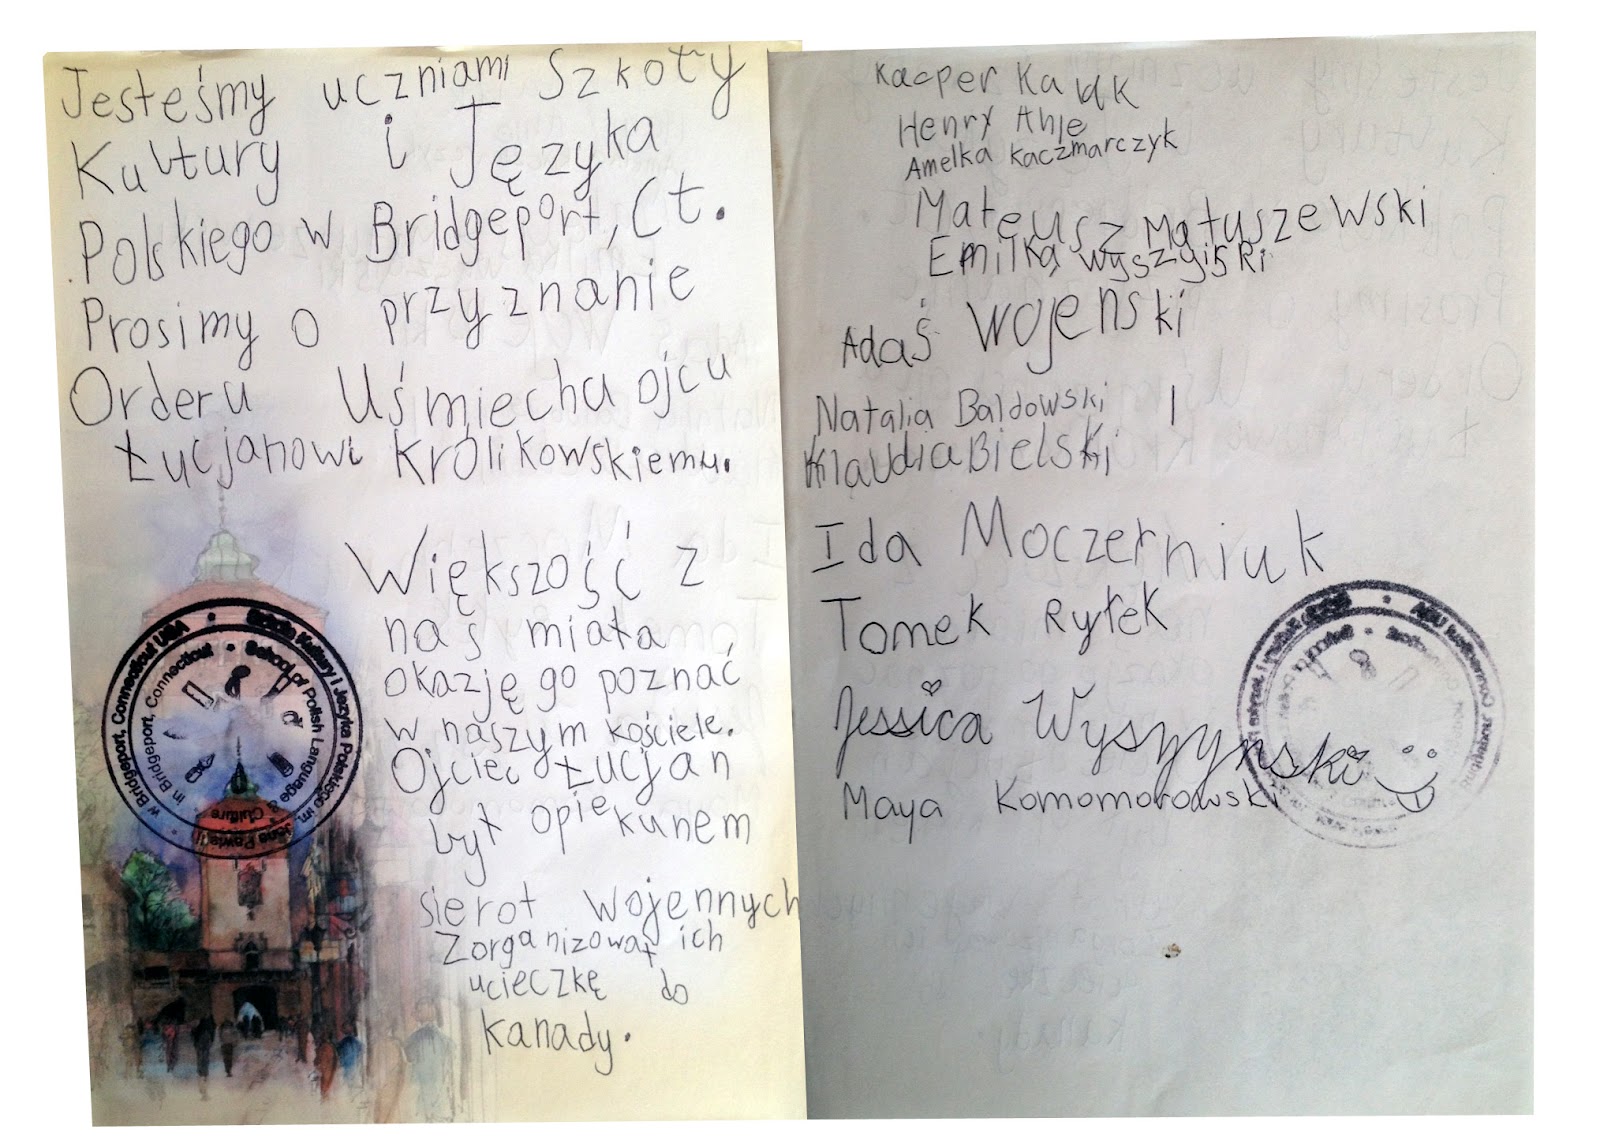 Jesteśmy uczniami Szkoły
Kultury i Języka
Polskiego w Bridgeport, Ct.
Prosimy o przyznanie
Orderu Uśmiechu ojcu
Łucjanowi Królikowskiemu.
Większość z
nas miała
okazję go poznać
w naszym kościele.
Ojciec Łucjan
był opiekunem
sierot wojennych
Zorganizował ich
ucieczkę do
Kanady.
Szkoła Kultury i Języka Polskiego im. Jana Pawła II w Bridgeport, Connecticut USA
School of Polish Language & Culture in Bridgeport, Connecticut
Kacper
Henry
Amelka Kaczmarczyk
Mateusz Matuszewski
Emilka
Adaś Wojenski
Natalia Baldowski
Klaudia Bielski
Ida Moczerniuk
Tomek Ryłek
Jessica Wyszynski
Maya Komomorowski